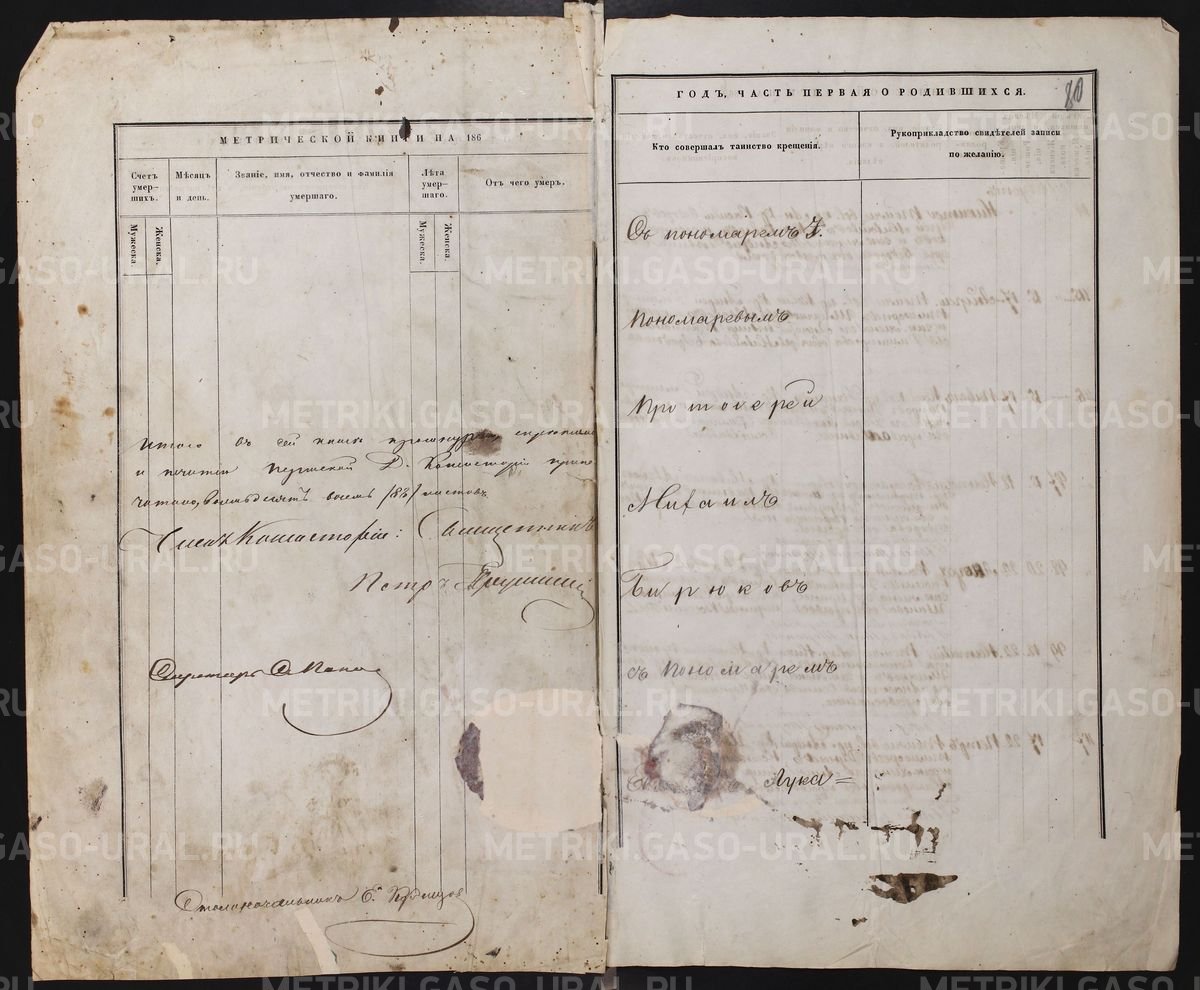 МЕТРИЧЕСКОЙ КНИГИ НА 186
Счетъ умер-шихъ.
Мѣсяцъ и день.
Званіе, имя, отчество и фамилія умершаго.
Лѣта умер-шаго.
Отъ чего умеръ.
Мужеска.
Женска.
Мужеска.
Женска.
Итого въ сей книгѣ
и печатью Пермской Д. Консисторіи припе-
чатано, восемьдесятъ восемь /88/ листовъ.
Членъ Консисторіи: Священникъ
Петръ
Секретарь
Столоначальникъ Е.
ГОДЪ, ЧАСТЬ ПЕРВАЯ О РОДИВШИХСЯ.
80
Кто совершалъ таинство крещенія.
Рукоприкладство свидѣтелей записи по желанію.
Съ пономаремъ Л.
Пономаревымъ
Протоіерей
Михаилъ
Бирюковъ
съ Пономаремъ
Лука=
METRIKI.GASO-URAL.RU